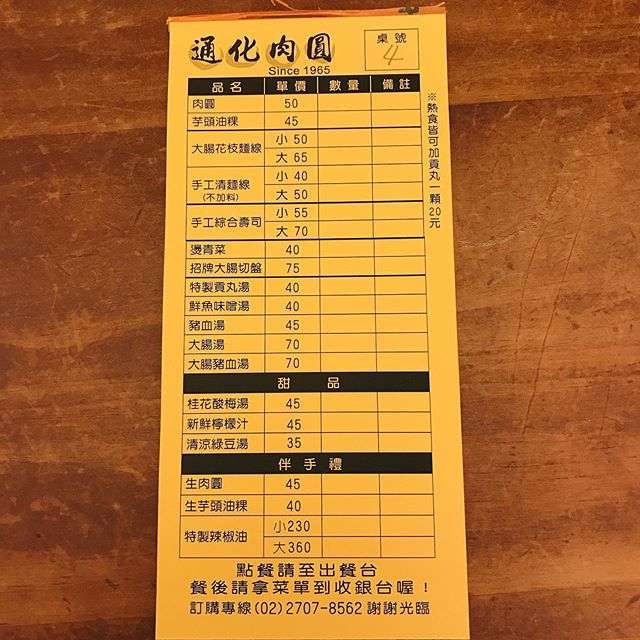 通化肉圓
Since 1965
桌號
4
品名 單價 數量 備註
肉圓 50
芋頭油粿 45
大腸花枝麵線 小 50
大 65
手工清麵線 (不加料) 小 40
大 50
手工綜合壽司 小 55
大 70
燙青菜 40
招牌大腸切盤 75
特製貢丸湯 40
鮮魚味噌湯 40
豬血湯 45
大腸湯 70
大腸豬血湯 70
※熱食皆可加貢丸一顆20元
甜品
桂花酸梅湯 45
新鮮檸檬汁 45
清涼綠豆湯 35
伴手禮
生肉圓 45
生芋頭油粿 40
特製辣椒油 小230
大360
點餐請至出餐台
餐後請拿菜單到收銀台喔！
訂購專線(02)2707-8562 謝謝光臨